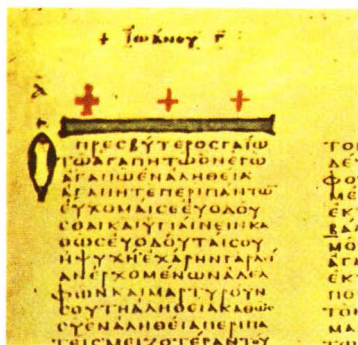 + Ϊωάνου Γ̄
Ο ΠΡΕСΒΥΤΕΡΟСΓΑΪΩ
ΤΩΑΓΑΠΗΤΩΟΝΕΓΩ
ΑΓΑΠΩΕΝΑΛΗΘΕΙΑ
ΑΓΑΠΗΤΕΠΕΡΙΠΑΝΤΩ̄
ΕΥΧΟΜΑΙСΕΕΥΟΔΟΥ
СΘΑΙΚΑΙΥΓΙΑΙΝΕΙΝΚΑ
ΘΩСΕΥΟΔΟΥΤΑΙСΟΥ
ΗΨΥΧΗΕΧΑΡΗΝΓΑΡΛΙ
ΑΝΕΡΧΟΜΕΝΩΝΑΔΕΛ
ΦΩΝΚΑΙΜΑΡΤΥΡΟΥΝ
СΟΥΤΗΑΛΗΘΕΙΑΚΑΘΩС
СΥΕΝΑΛΗΘΕΙΑΠΕΡΙΠΑ
ΤΕΙСΜΕΙΖΟΤΕΡΑΝΤΟΥ